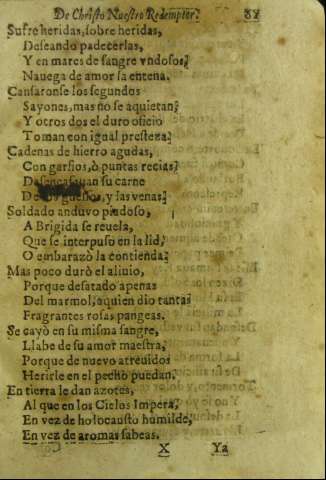 De Christo Nuestro Redemptor. 87
Sufre heridas, sobre heridas,
Deseando padecerlas,
Y en mares de sangre vndosos,
Nauega de amor la entena.
Cansaronse los segundos
Sayones, mas no se aquietan,
Y otros dos el duro oficio
Toman con igual presteza,
Cadenas de hierro agudas,
Con garfios, ò puntas recias,
Desencaxauan su carne
De los guessos, y las venas,
Soldado anduvo piadoso,
A Brigida se reuela,
Que se interpuso en la lid,
O embarazò la contienda,
Mas poco durò el aliuio,
Porque desatado apenas
Del marmol, a quien dio tantas
Fragrantes rosas pangeas.
Se cayò en su misma sangre,
Llabe de su amor maestra,
Porque de nuevo atreuidos
Herirle en el pecho puedan,
En tierra le dan azotes,
Al que en los Cielos Impera,
En vez de holocausto humilde,
En vez de aromas sabeas.
X Ya